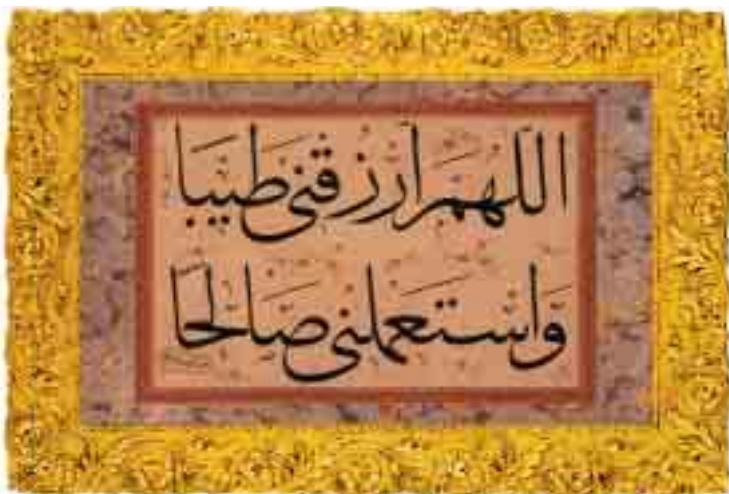 اللّهُمَّ ارْزُقْنِي طَيِّبًا
وَاسْتَعْمِلْنِي صَالِحًا